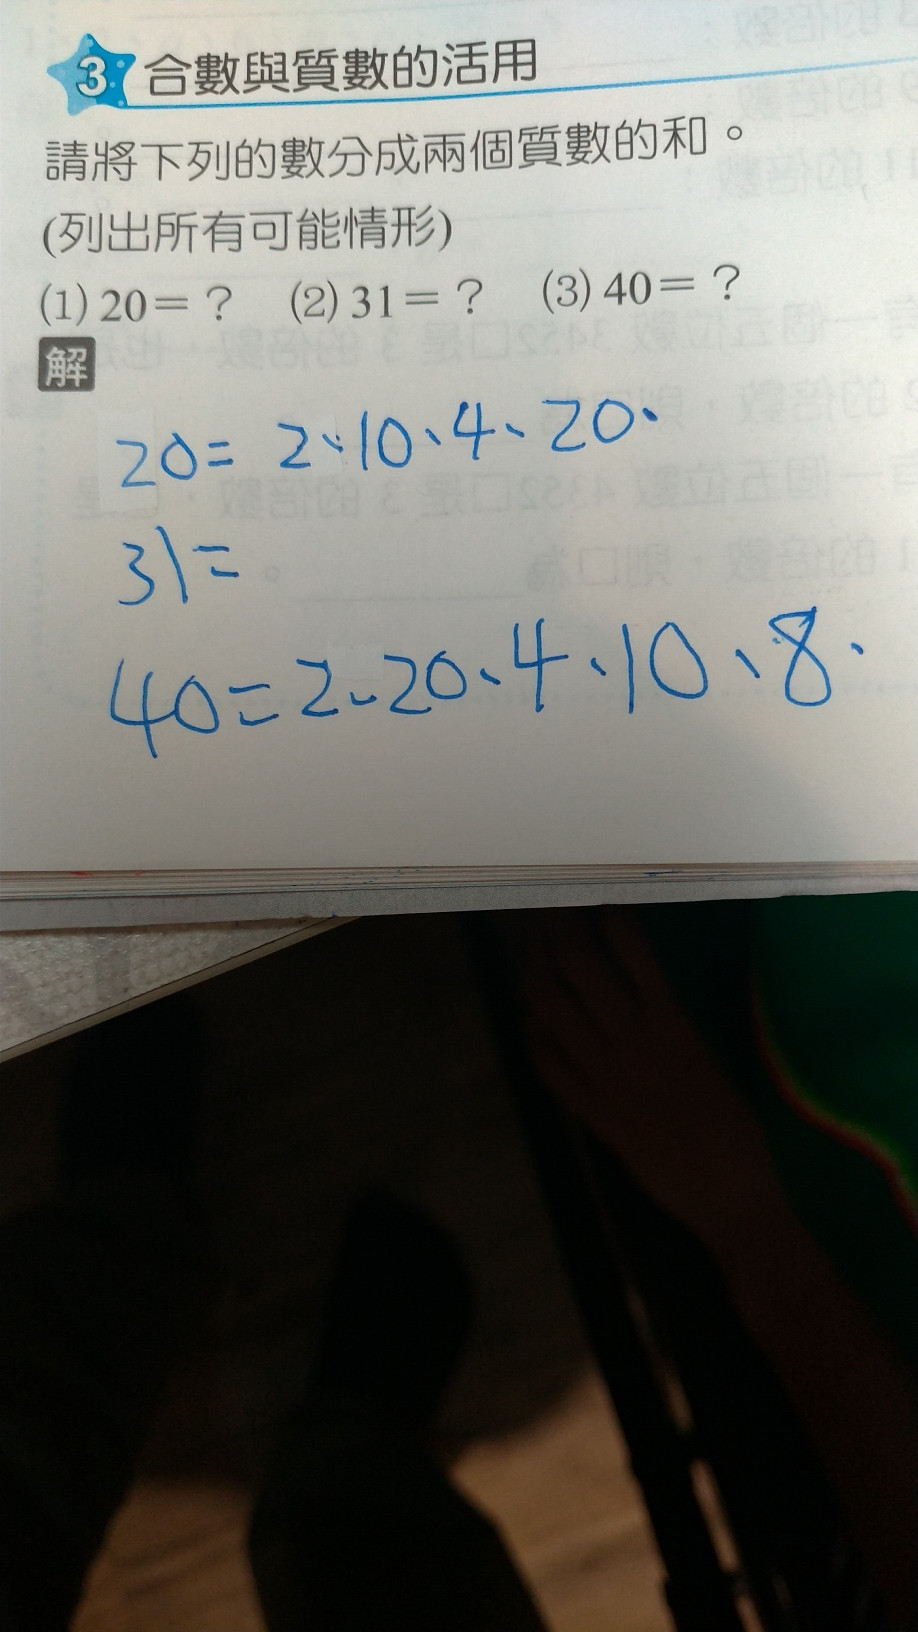 3 合數與質數的活用
請將下列的數分成兩個質數的和。
(列出所有可能情形)
(1) 20＝？ (2) 31＝？ (3) 40＝？
解
20= 2、10、4、20、
31=
40=2、20、4、10、8、